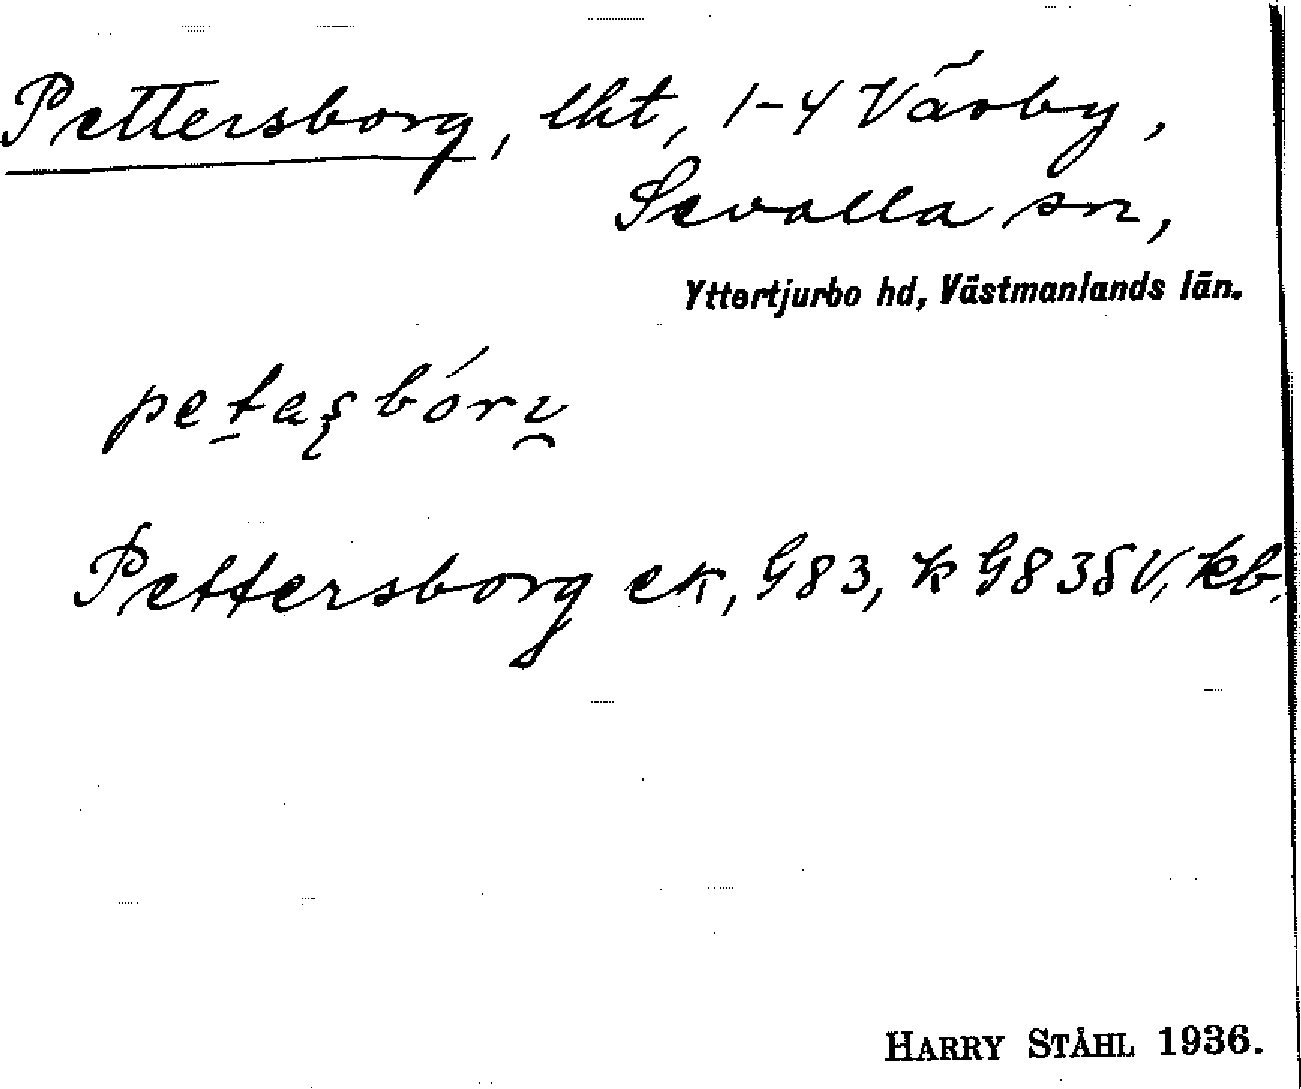 Pettersborg, lht, 1-4 Vārby,
Sevalla sn,
Yttertjurbo hd, Västmanlands län.
Pettersborg ek, G83, k G83SV, kb.
HARRY STÅHL 1936.